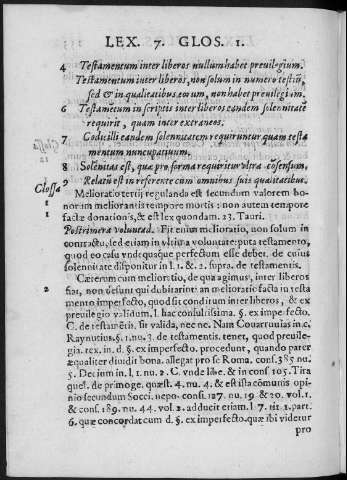 LEX. 7. GLOS. 1.
4 Testamentum inter liberos nullum habet preuilegium.
Testamentum inter liberos, non solum in numero testiũ,
sed & in qualitatibus eorum, non habet preuilegium.
6 Testamẽtum in scriptis inter liberos eandem solennitatẽ
requirit, quam inter extraneos.
7 Codicilli eandem solennitatem requiruntur quam testa
mentum nuncupatiuum.
8 Solẽnitas est, quæ pro forma requiritur vltra cõsensum.
9 Relatũ est in referente cum omnibus suis qualitatibus.
Glossa
1
Melioratio tertij regulanda est secundum valorem bo-
norum meliorantis tempore mortis: non autem tempore
factæ donationis, & est lex quondam. 23. Tauri.
1 Postrimera voluntad. Fit enim melioratio, non solum in
contractu, sed etiam in vltima voluntate: puta testamento,
quod eo casu vndequsque perfectum esse debet. de cuius
solennitate disponitur in l. 1. & 2. supra. de testamentis.
Cæterum cum melioratio, de qua agimus, inter liberos
2 fiat, non desunt qui dubitarint: an melioratio facta in testa
mento imperfecto, quod sit conditum inter liberos, & ex
preuilegio validum. l. hac consultissima. §. ex imperfecto.
C. de testamẽtis. sit valida, nec ne. Nam Couarruuias in c.
Raynutius. §. 1. nu. 3. de testamentis. tenet, quod preuile-
gia. tex. in d. §. ex imperfecto. procedunt, quando parer
æqualiter diuidit bona. allegat pro se Roma. cons. 385 nu.
5. Decium in l. 1. nu. 2. C. vnde libe. & in cons 105. Tira
quel. de primoge. quæst. 4. nu. 4. & est ista cõmunis opi
nio secundum Socci. nepo. cons. 127. nu. 19 & 20. vol. 1.
& cons. 189. nu. 44. vol. 2. adducit etiam. l. 7. tit 1. part.
6. quæ concordat cum d. §. ex imperfecto. quæ ibi videtur
pro